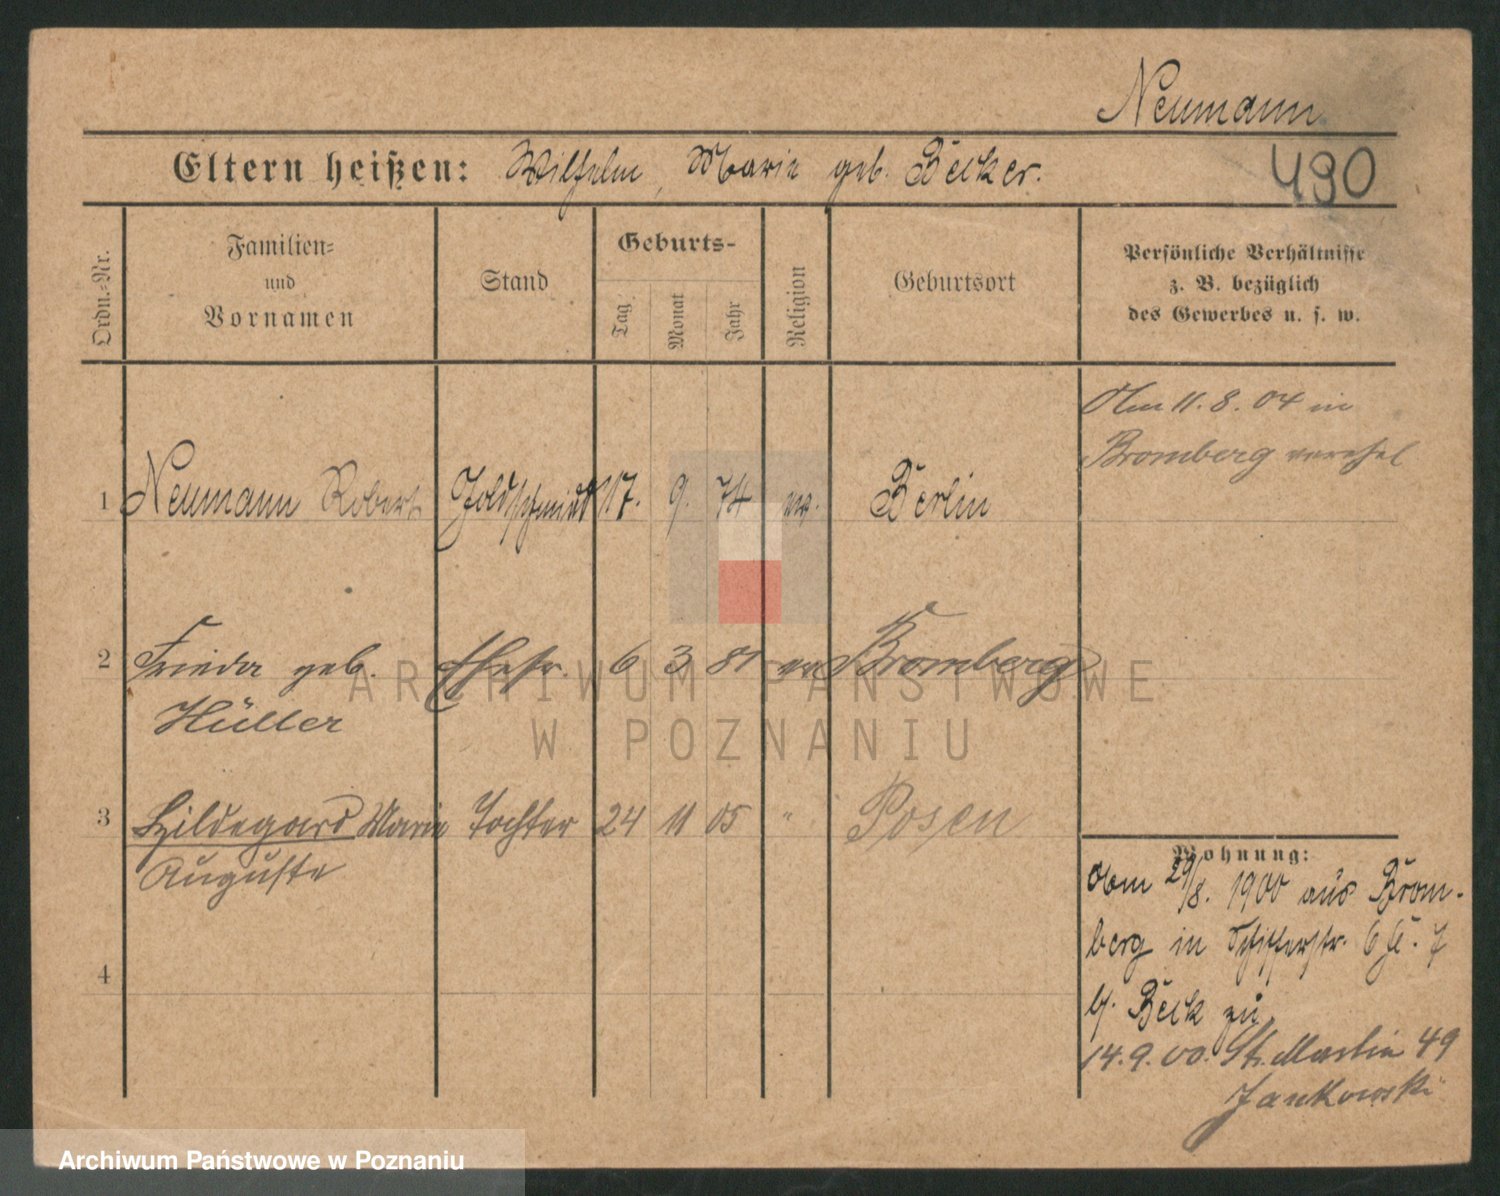 Neumann
Eltern heißen: Wilhelm, Marie geb. Becker.
490
Ordn.-Nr.
Familien-
und
Vornamen
Stand
Geburts-
Tag
Monat
Jahr
Religion
Geburtsort
Persönliche Verhältnisse
z. B. bezüglich
des Gewerbes u. s. w.
Am 11.8.04 in
Bromberg verehel
1 Neumann Robert Goldschmidt 17. 9. 74 ev. Berlin
2 Frieda geb. Ehefr. 6 3 81 ev Bromberg
Hüller
3 Hildegard Marie Tochter 24 11 05 " Posen
Auguste
4
Wohnung:
Am 29/8. 1900 aus Brom-
berg in 6
b. Beck zu
14.9.00. St. Martin 49
Jankowski
ARCHIWUM PAŃSTWOWE
W POZNANIU
Archiwum Państwowe w Poznaniu